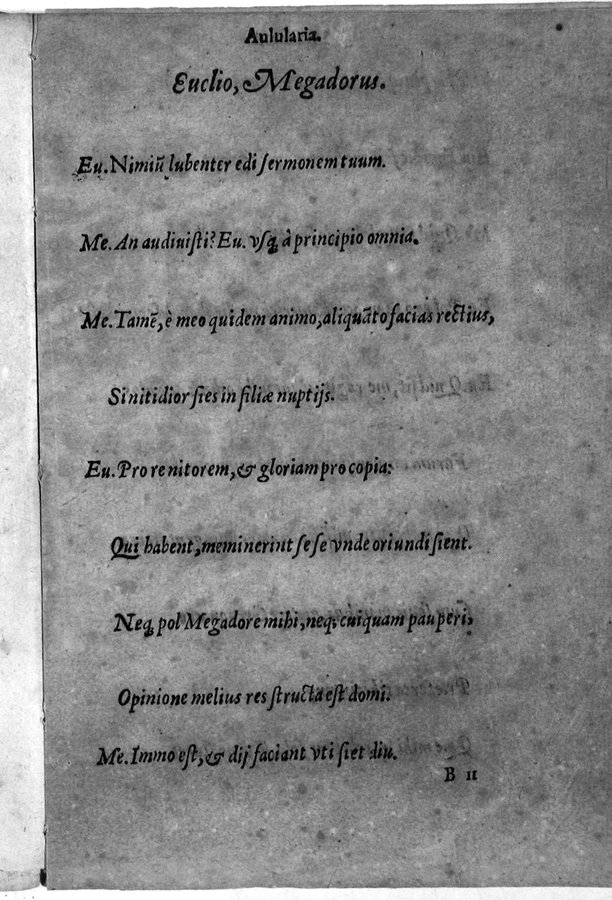 Aulularia.
Euclio, Megadorus.
Eu. Nimiũ lubenter edi ſermonem tuum.
Me. An audiuiſti? Eu. vſq; à principio omnia.
Me. Tamẽ, è meo quidem animo, aliquãto facias rectius,
Si nitidior ſies in filiæ nuptijs.
Eu. Pro re nitorem, & gloriam pro copia:
Qui habent, meminerint ſe ſe vnde oriundi ſient.
Neq; pol Megadore mihi, neq; cuiquam pauperi,
Opinione melius res ſtructa eſt domi.
Me. Immo eſt, & dij faciant vti ſiet diu.
B II